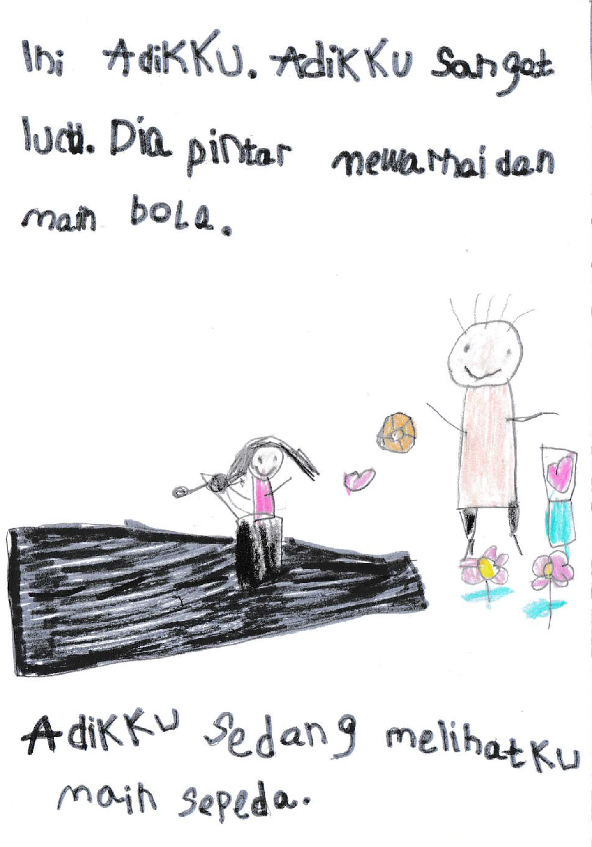 Ini Adikku. Adikku sangat
lucu. Dia pintar mewarnai dan
main bola.
Adikku sedang melihatku
main sepeda.